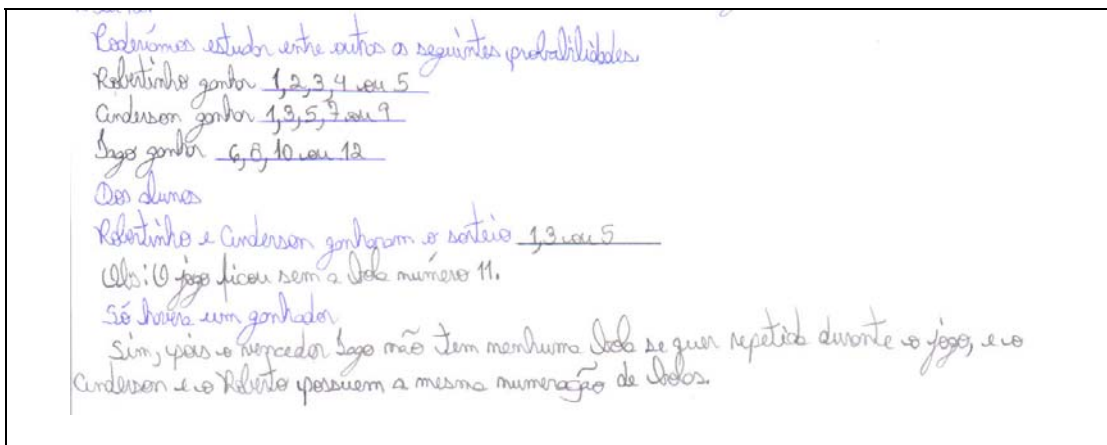 Poderíamos estudar entre outros as seguintes probabilidades.
Robertinho ganhar 1,2,3,4 ou 5
Anderson ganhar 1,3,5,7 ou 9
Iago ganhar 6,8,10 ou 12
Dos alunos
Robertinho e Anderson ganharam o sorteio 1,3 ou 5
Obs: O jogo ficou sem a bola número 11.
Só haverá um ganhador
Sim, pois o vencedor Iago não tem menhuma bola se quer repetida durante o jogo, e o
Anderson e o Roberto possuem a mesma numeração de bolas.